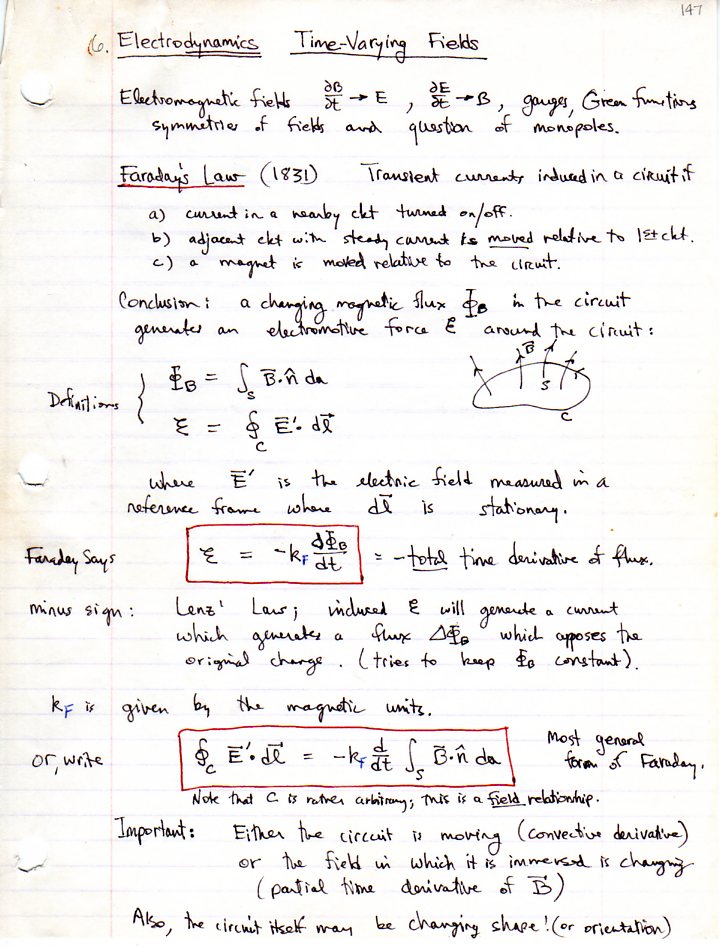 147
6. Electrodynamics Time-Varying Fields
Electromagnetic fields ∂B/∂t → E , ∂E/∂t → B, gauges, Green functions
symmetries of fields and question of monopoles.
Faraday's Law (1831) Transient currents induced in a circuit if
a) current in a nearby ckt turned on/off.
b) adjacent ckt with steady current is moved relative to 1st ckt.
c) a magnet is moved relative to the circuit.
Conclusion: a changing magnetic flux Φ_B in the circuit
generates an electromotive force ℰ around the circuit:
B⃗
S
C
Definitions { Φ_B = ∫_S B⃗·n̂ da
ℰ = ∮_C E⃗'· dl⃗
where E⃗' is the electric field measured in a
reference frame where dl⃗ is stationary.
Faraday Says ℰ = -k_F dΦ_B/dt = -total time derivative of flux.
minus sign: Lenz' Law; induced ℰ will generate a current
which generates a flux ΔΦ_B which opposes the
original change. (tries to keep Φ_B constant).
k_F is given by the magnetic units.
or, write ∮_C E⃗'· dl⃗ = -k_F d/dt ∫_S B⃗·n̂ da Most general
form of Faraday.
Note that C is rather arbitrary; this is a field relationship.
Important: Either the circuit is moving (convective derivative)
or the field in which it is immersed is changing
(partial time derivative of B⃗)
Also, the circuit itself may be changing shape! (or orientation)